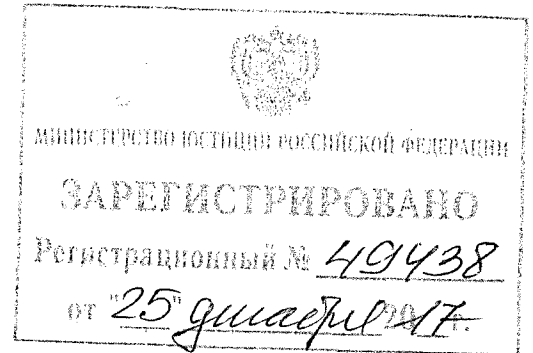 МИНИСТЕРСТВО ЮСТИЦИИ РОССИЙСКОЙ ФЕДЕРАЦИИ
ЗАРЕГИСТРИРОВАНО
Регистрационный № 49438
от "25" декабря 2017 г.